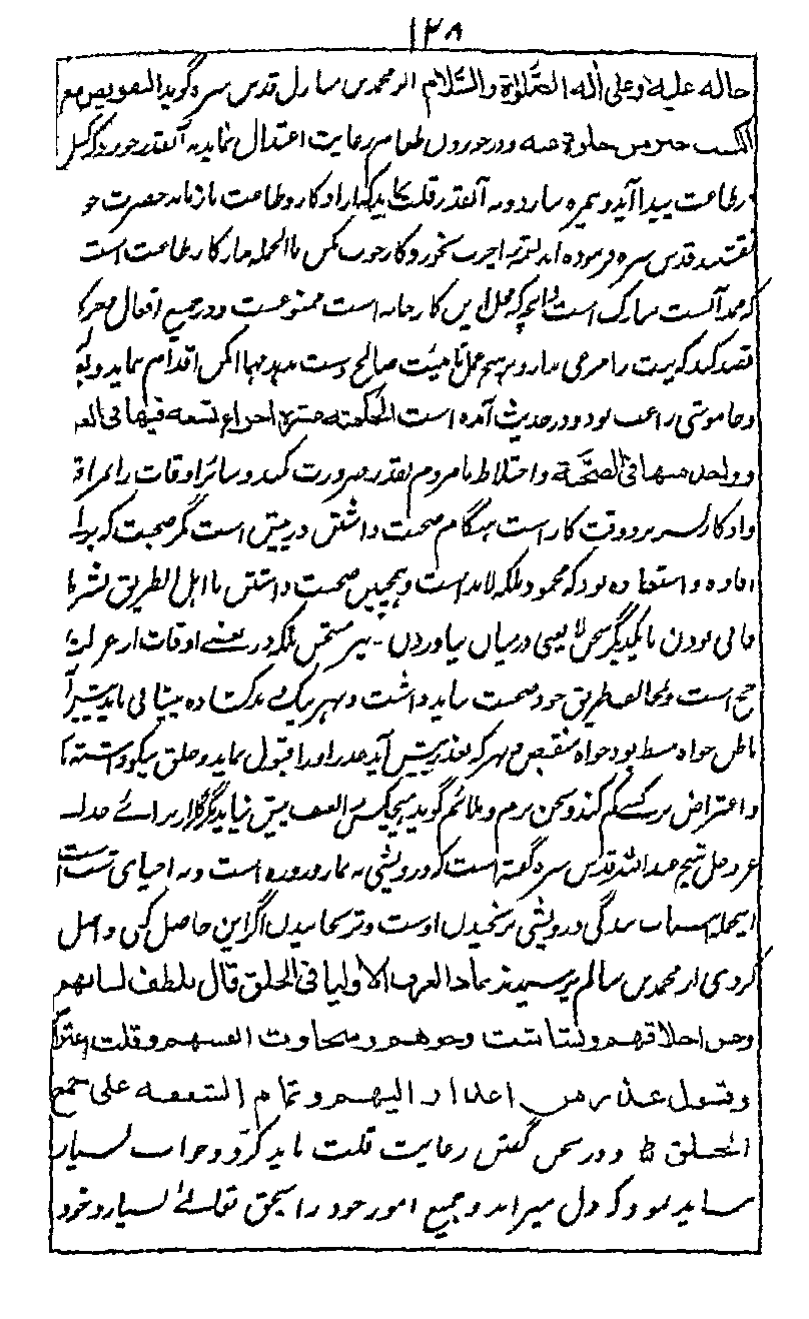 ١٢٨
حاله عليه وعلى اٰله الصَّلٰوة والسَّلام ابو محمد بن منازل قدس سره گوید التفویض مع
الکسب خیر من خلوة عنه و در خوردن طعام رعایت اعتدال نماید نه آنقدر خورد که کسل
در طاعت پیدا آید و بیمزه سازد و نه آنقدر قلت نماید که از اذکار و طاعت باز ماند حضرت خو
نقشبند قدس سره فرموده اند لقمه چرب بخور و کار خوب کن بالجمله مدار کار طاعت است
که ممد آنست مبارک است و آنچه که مخل این کارخانه است ممنوعست و در جمیع افعال
قصد کند که نیت را مرعی دارد و به هیچ عمل تا نیت صالح دست ندهد مهما امکن اقدام ننماید و
و خاموشی راغب بود و در حدیث آمده است الحکمة عشرة اجزاء تسعه فیها فی
و واحد منها فی الصحة و اختلاط با مردم بقدر ضرورت کند و سائر اوقات را
و اذکار بسر برد وقت کار است هنگام صحبت داشتن در پیش است مگر صحبت که برای
افاده و استفاده بود که محمود بلکه لابد است و همچنین صحبت داشتن با اهل الطریق بشرط
فانی بودن با یکدیگر سخن لا یعنی درمیان نیاوردن - نیز مستحسن بلکه در بعضے اوقات از عزلت
است و مخالف طریق خود صحبت نباید داشت و بهر یک به کشاده پیشانی باید پیش آ
باطن خواه منبسط بود خواه منقبض و هر که بعذر پیش آید عذر او را قبول نماید و خلق نیکو داشته
و اعتراض بر کسے کم کند و سخن نرم و ملائم گوید بهیچکس بعنف پیش نیاید مگر از برائے خدا
عز و جل شیخ عبد الله قدس سره گفته است که درویشی نه نماز و روزه است و نه احیای شب است
اینجمله اسباب بندگی درویشی نرنجیدن اوست و نرنجانیدن اگر این حاصل کنی واصل
گردی از محمد بن سالم پرسیدند بماذا یعرف الاولیا فی الخلق قال بلطف لسانهم
وحسن اخلاقهم وبشاشت وجوههم وسخاوت انفسهم وقلت
وقبول عذر من اعتذر الیهم وتمام الشفقه علی جمیع
الخلق و در سخن گفتن رعایت قلت باید کرد و خواب بسیار
نباید نمود که دل میراند و جمیع امور خود را بحق تعالے بسپارد و خود